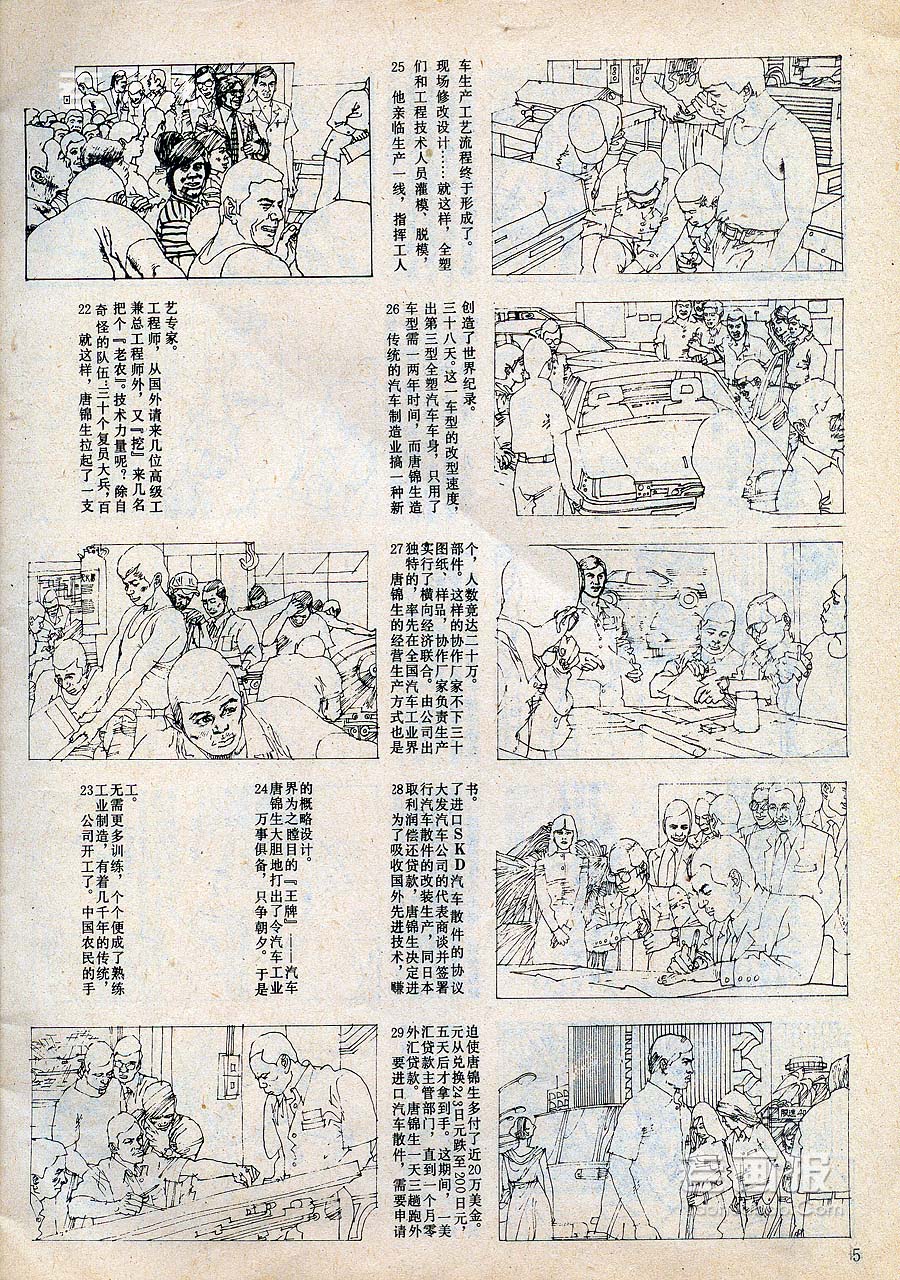 22 就这样，唐锦生拉起了一支
奇怪的队伍：三十个复员大兵，百
把个『老农』。技术力量呢？除自
兼总工程师外，又『挖』来几名
工程师，从国外请来几位高级工
艺专家。
23 公司开工了。中国农民的手
工业制造，有着几千年的传统，
无需更多训练，个个便成了熟练
工。
24 万事俱备，只争朝夕。于是
唐锦生大胆地打出了令汽车工业
界为之瞠目的『王牌』——汽车
的概略设计。
25 他亲临生产一线，指挥工人
们和工程技术人员灌模、脱模，
现场修改设计……就这样，全塑
车生产工艺流程终于形成了。
26 传统的汽车制造业搞一种新
车型需一两年时间，而唐锦生造
出第三型全塑汽车车身，只用了
三十八天。这一车型的改型速度，
创造了世界纪录。
27 唐锦生的经营生产方式也是
独特的，率先在全国汽车工业界
实行了横向经济联合。由公司出
图纸、样品，协作厂家负责生产
部件。这样的协作厂家不下三十
个，人数竟达二十万。
28 为了吸收国外先进技术，赚
取利润偿还贷款，唐锦生决定进
行汽车散件的改装生产，同日本
大发汽车公司的代表商谈并签署
了进口SKD汽车散件的协议
书。
29 要进口汽车散件，需要申请
外汇贷款。唐锦生一天三趟跑外
汇贷款主管部门，直到一个月零
五天后才拿到手。这期间，一美
元从兑换243日元跌至200日元，
迫使唐锦生多付了近20万美金。
限速40
5